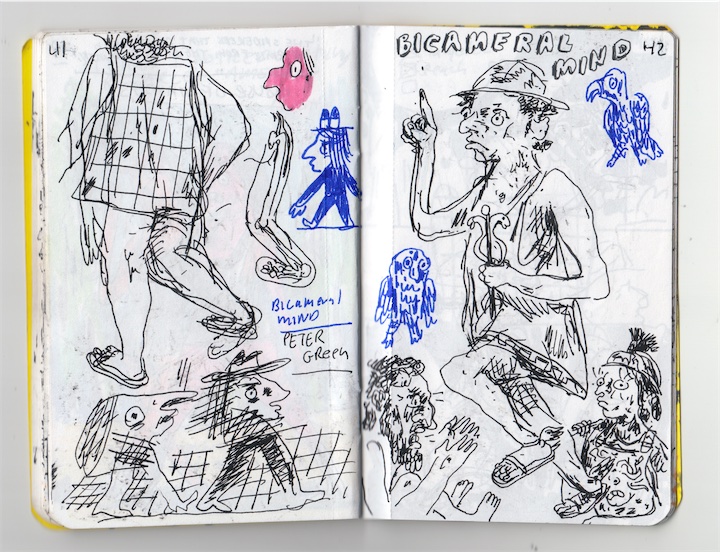 41
Bicameral
MIND
PETER
GREEN
BICAMERAL
MIND
42